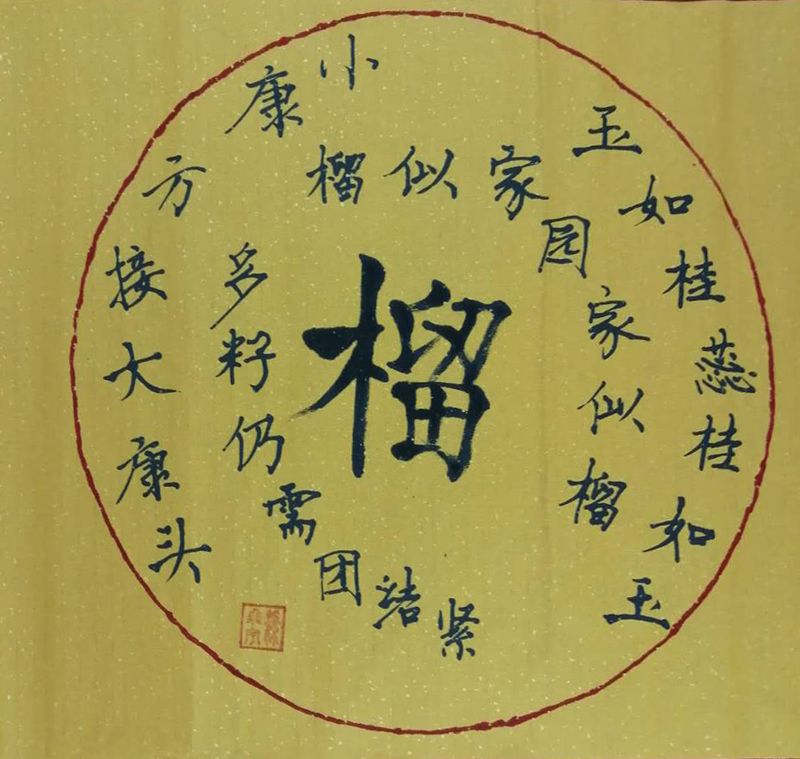 玉如桂蕊桂如玉
榴似家园家似榴
多籽仍需团结紧
小康方接大康头
榴